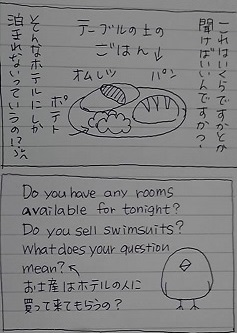 これはいくらですかとか
聞けばいいんですかっ・
テーブルの土の
ごはん↓
オムレツ
パン
ポテト
どんなホテルにしか
泊まれないっていうの!?
Do you have any rooms
available for tonight?
Do you sell swimsuits?
What does your question
mean?↖
お土産はホテルの人に
買って来てもらうの?